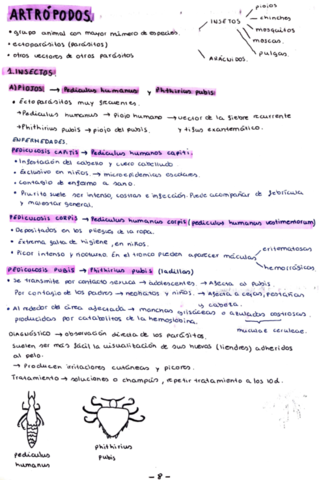 ARTRÓPODOS,
• grupo animal con mayor número de especies.
• ectoparásitos (parásitos)
• otros vectores de otros parásitos
INSETOS
piojos
chinches
mosquitos
moscas.
pulgas.
ARÁCNIDOS.
1. INSECTOS
A) PIOJOS: → Pediculus humanus y Phithirius pubis
• Ectoparásitos muy frecuentes.
→ Pediculus humanus → piojo humano → vector de la fiebre recurrente
→ Phithirius pubis → piojo del pubis. y tifus exantemático.
ENFERMEDADES.
PEDICULOSIS CAPITIS → Pediculus humanos capiti:
• Infestación del cabello y cuero cabelludo
• Exclusivo en niños → microepidemias escolares.
• Contagio de enfermo a sano.
• Prurito suele ser intenso, costras e infección. Puede acompañar de febrícula
y malestar general.
PEDICULOSIS CORPIS → Pediculus humanus corpis (pediculus humanus vestimenorum)
• Depositados en los pliegues de la ropa.
• Extrema falta de higiene, en niños.
• Picor intenso y nocturno. En el tronco pueden aparecer máculas
eritematosas
hemorrágicas
PEDICULOSIS PUBIS → Phithirius pubis (ladillas)
• Se transmite por contacto venereo → adolescentes → Afecta al pubis.
Por contagio de los padres → neonatos y niños. → Afecta a cejas, pestañas
y cabeza.
• Al rededor de área afectada → manchas grisáceas o azuladas
producidas por catabolitos de la hemoglobina.
maculae ceruleae.
DIAGNÓSTICO → observación directa de los parásitos.
Suelen ser más fácil la visualización de sus huevos (liendres) adheridos
al pelo.
→ Producen irritaciones cutáneas y picores.
Tratamiento → soluciones o champús, repetir tratamiento a los 10d.
pediculus
humanus
phithirius
pubis
- 8 -